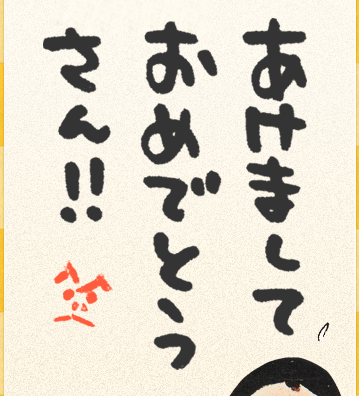 あけまして
おめでとう
さん!!